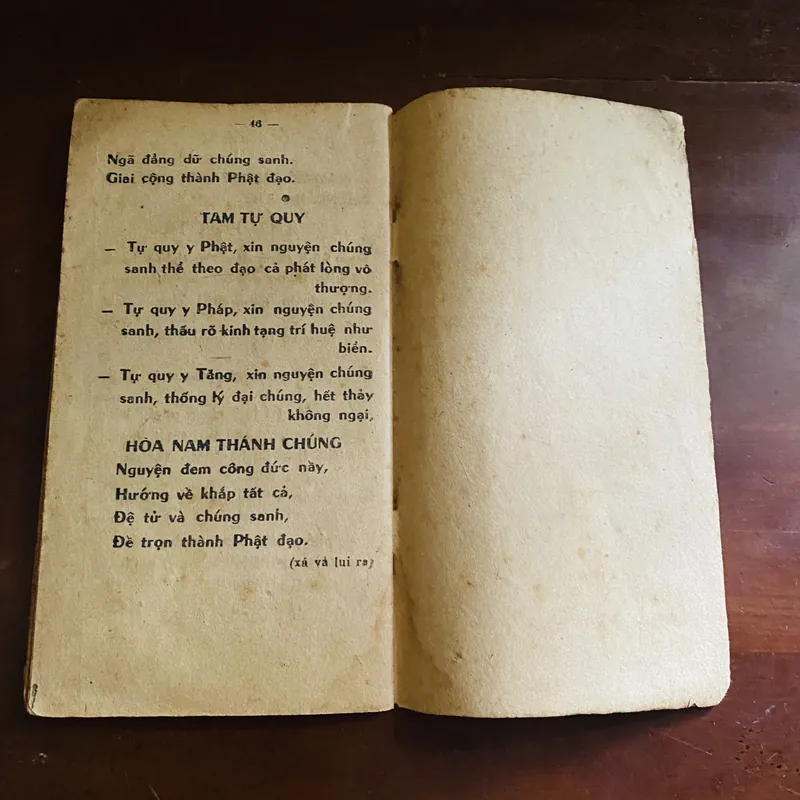 — 46 —
Ngã đẳng dữ chúng sanh.
Giai cộng thành Phật đạo.
TAM TỰ QUY
— Tự quy y Phật, xin nguyện chúng
sanh thể theo đạo cả phát lòng vô
thượng.
— Tự quy y Pháp, xin nguyện chúng
sanh, thấu rõ kinh tạng trí huệ như
biển.
— Tự quy y Tăng, xin nguyện chúng
sanh, thống lý đại chúng, hết thảy
không ngại,
HÒA NAM THÁNH CHÚNG
Nguyện đem công đức nầy,
Hướng về khắp tất cả,
Đệ tử và chúng sanh,
Đề trọn thành Phật đạo.
(xá và lui ra)